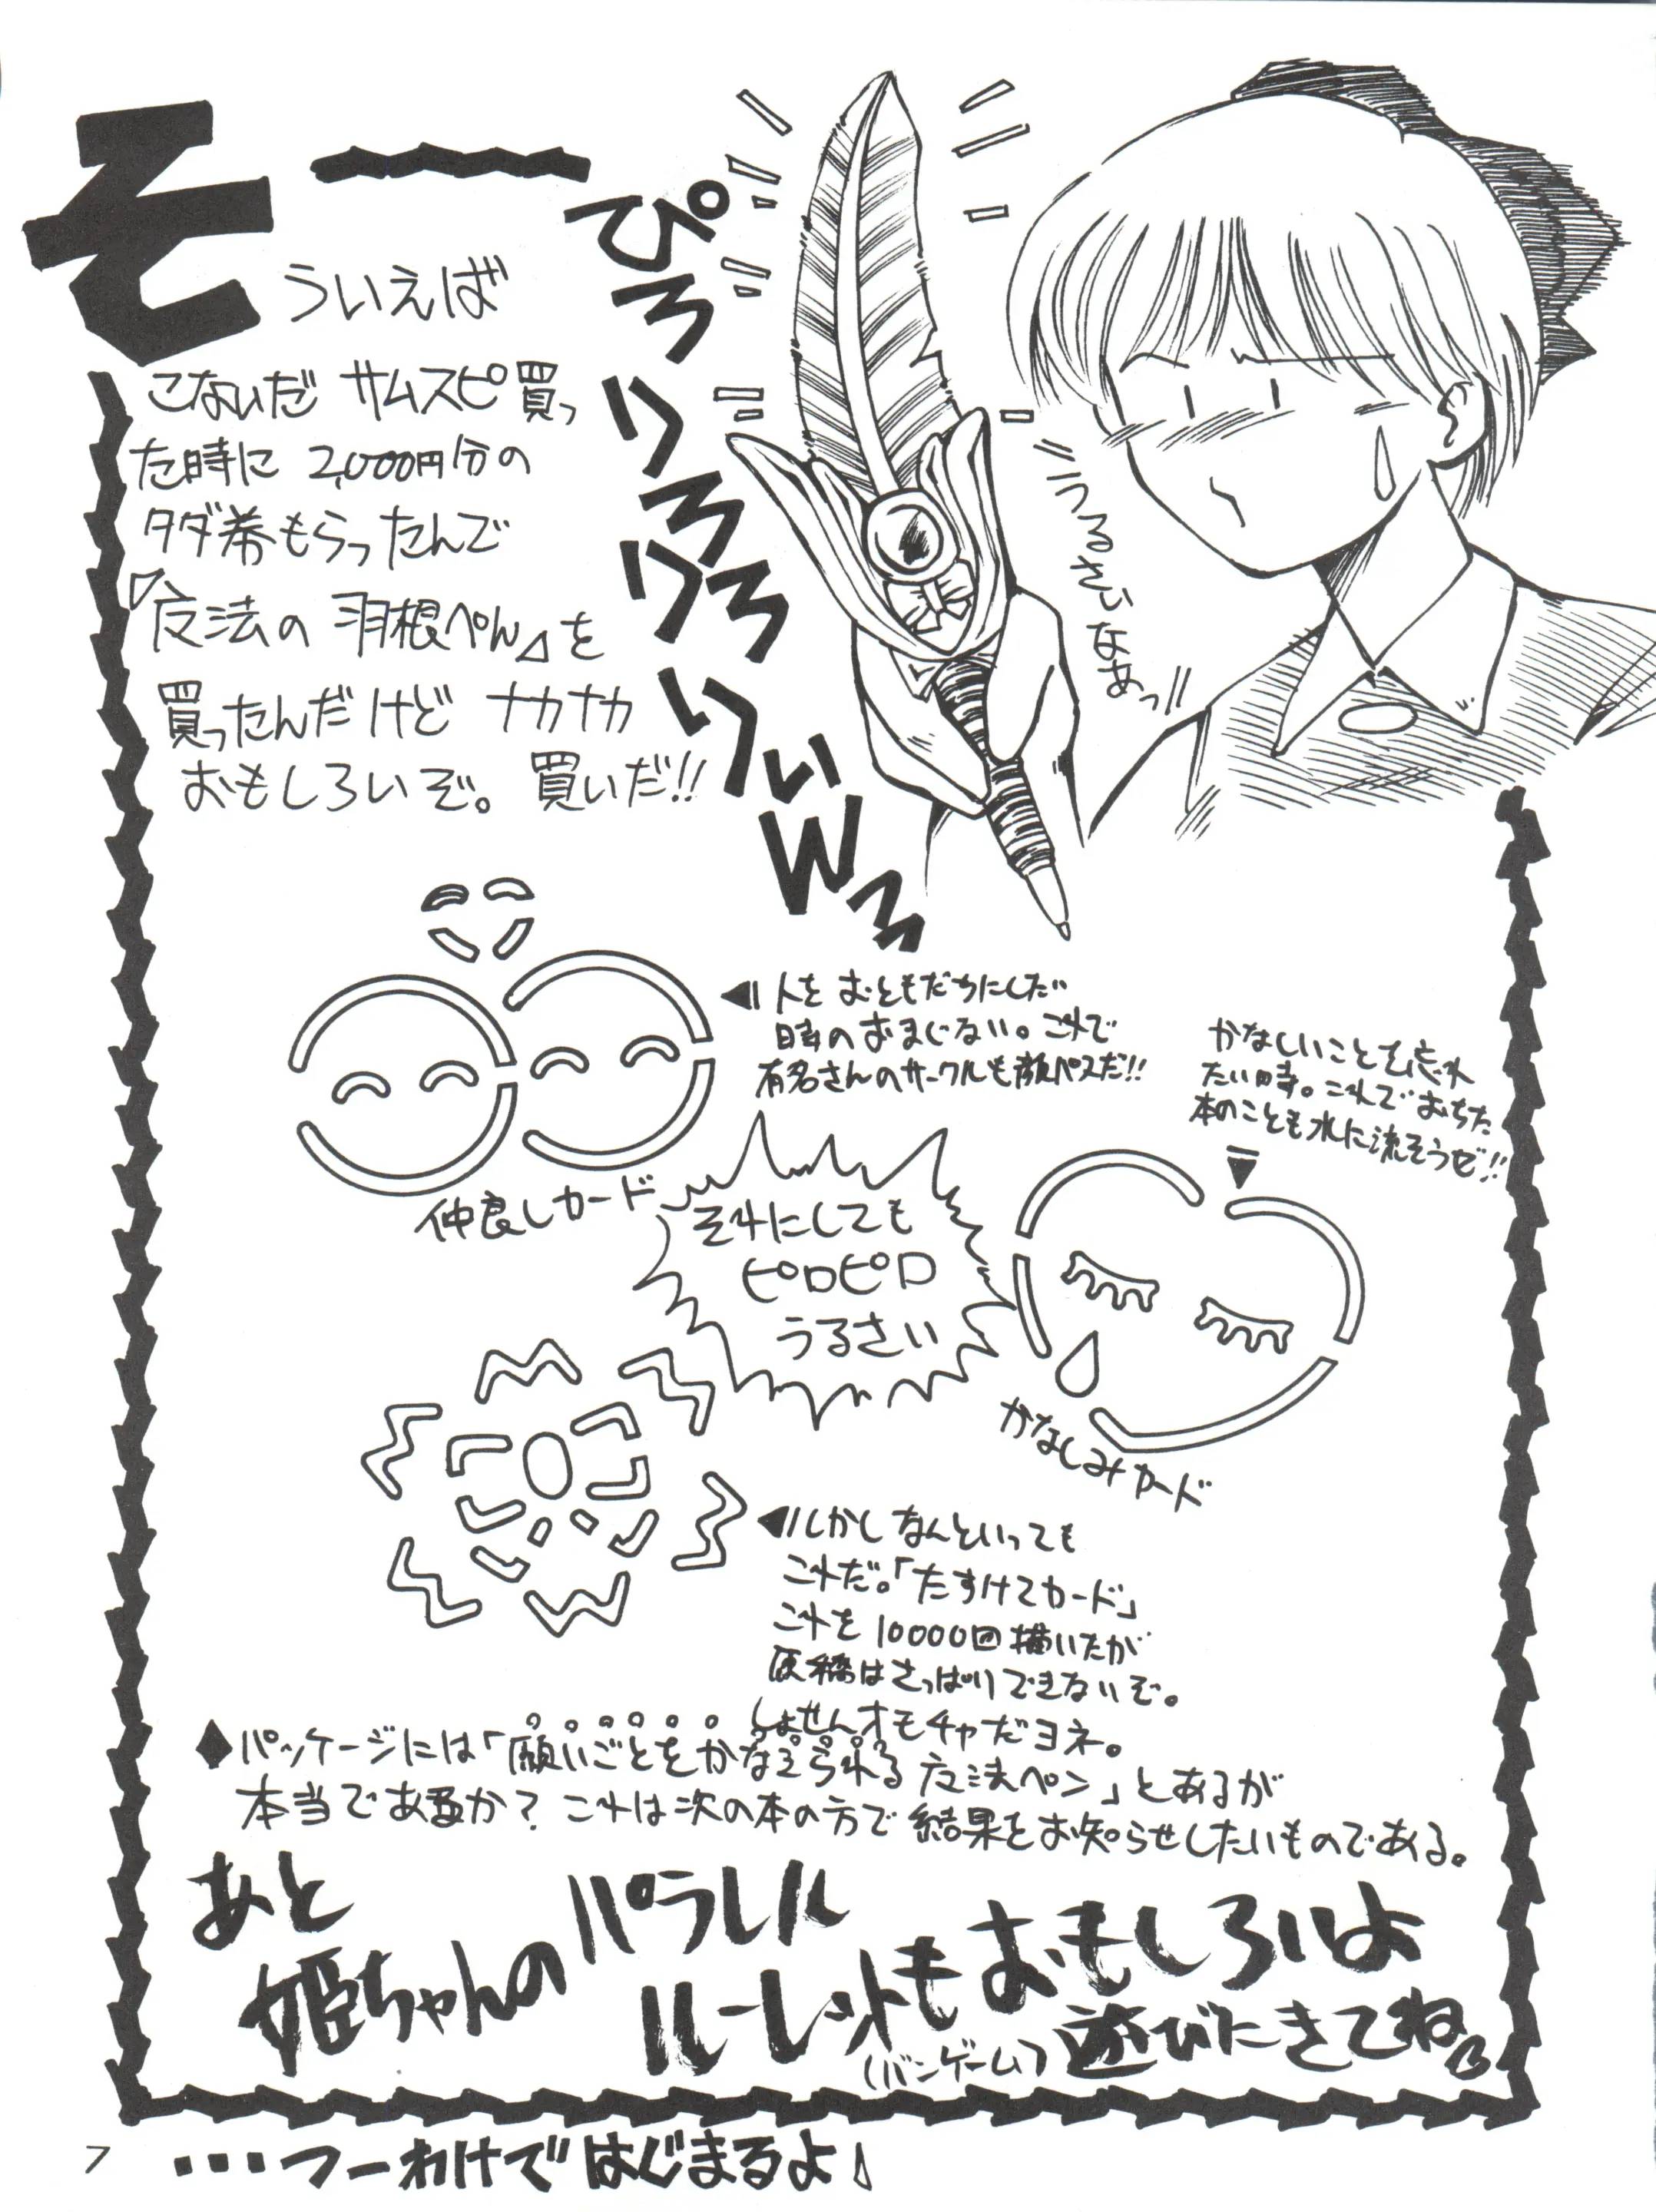 そーういえば
こないだ サムスピ買っ
た時に 2,000円分の
タダ券もらったんで
『魔法の羽根ぺん』を
買ったんだけど ナカナカ
おもしろいぞ。 買いだ!!
ぴろりろりろりりぃWろ
うるさいなあっ!!
人をおともだちにしたい
時のおまじない。これで
有名さんのサークルも顔パスだ!!
仲良しカード
かなしいことを忘れ
たい時。これでおちた
本のことも水に流そうゼ!!
それにしても
ピロピロ
うるさい
かなしみカード
しかしなんといっても
これだ。「たすけてカード」
これを10000回描いたが
原稿はさっぱりできないぞ。
しょせんオモチャだヨネ。
◆パッケージには「願いごとをかなえられる魔法ペン」とあるが
本当であるか? これは次の本の方で結果をお知らせしたいものである。
あと
姫ちゃんのパラレル
ルーレットもおもしろいよ
(バンゲーム) 遊びにきてね
7
・・・つーわけではじまるよ♪